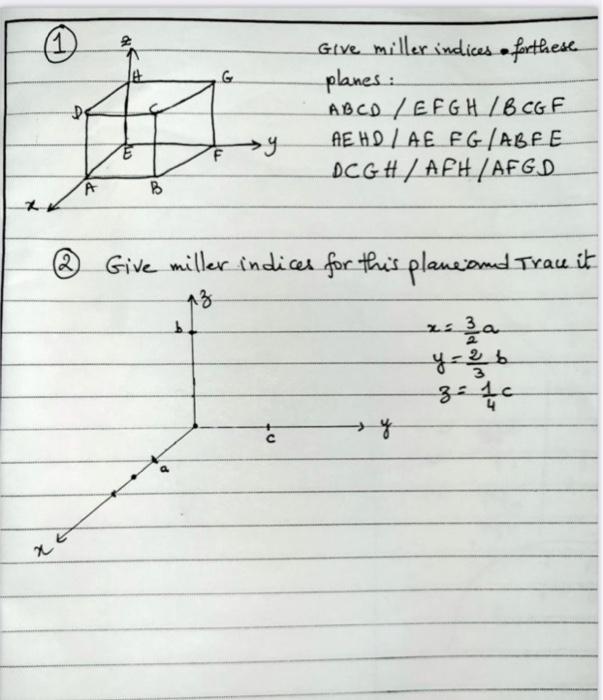 1
z
Give miller indices for these
H
G
planes :
D
C
ABCD / EFGH / BCGF
E
F
y
AEHD / AE FG / ABFE
A
B
DCGH / AFH / AFGD
x
2 Give miller indices for this plane and Trace it
z
b
x = 3/2 a
y = 2/3 b
z = 1/4 c
c
y
a
x